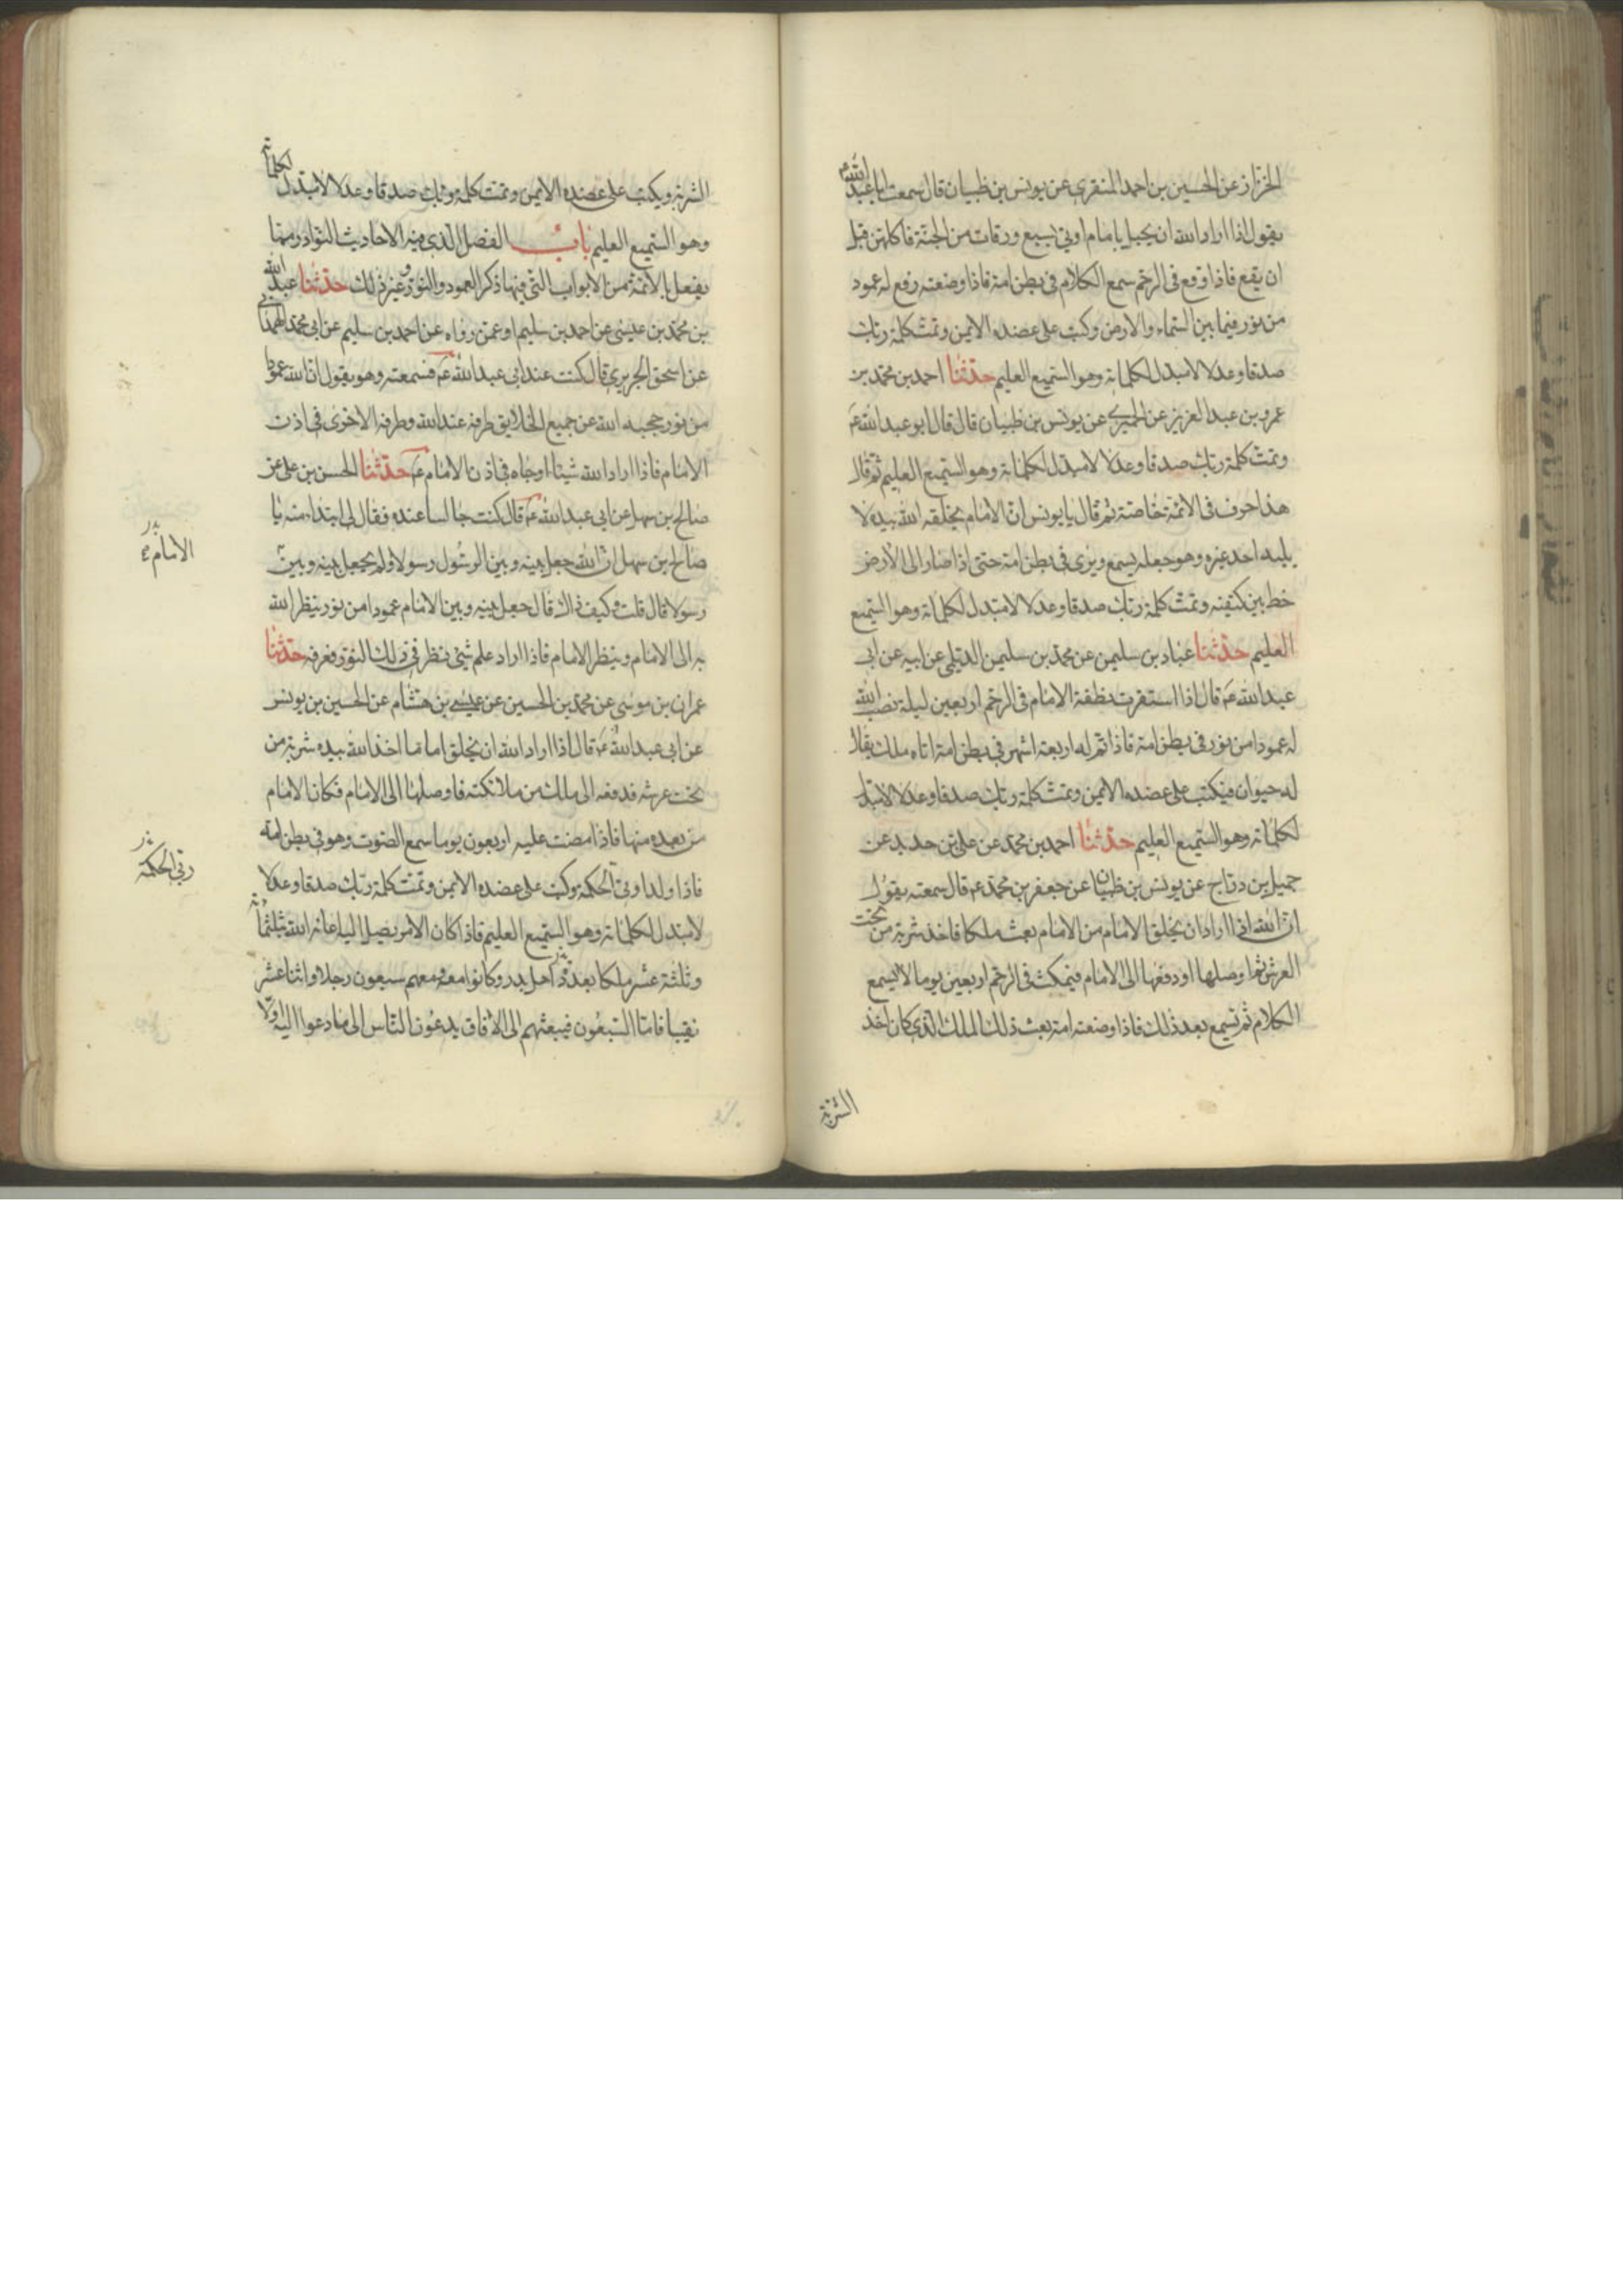 الخزاز عن الحسين بن احمد المنقري عن يونس بن ظبيان قال سمعت ابا عبد الله ع
يقول اذا اراد الله ان يحبل بامام اوتي بسبع ورقات من الجنة فاكلهن قبل
ان يقع فاذا وقع في الرحم سمع الكلام في بطن امه فاذا وضعته رفع له عمود
من نور فيما بين السماء والارض وكتب على عضده الايمن وتمت كلمة ربك
صدقا وعدلا لا مبدل لكلماته وهو السميع العليم حدثنا احمد بن محمد بن
عمرو بن عبد العزيز عن الحميري عن يونس بن ظبيان قال قال ابو عبد الله ع
وتمت كلمة ربك صدقا وعدلا لا مبدل لكلماته وهو السميع العليم ثم قال
هذا حرف في الائمة خاصة ثم قال يا يونس ان الامام يخلقه الله بيده لا
يليه احد غيره وهو جعله يسمع ويرى في بطن امه حتى اذا صار الى الارض
خط بين كتفيه وتمت كلمة ربك صدقا وعدلا لا مبدل لكلماته وهو السميع
العليم حدثنا عباد بن سليمن عن محمد بن سليمن الديلمي عن ابيه عن ابي
عبد الله ع قال اذا استقرت نطفة الامام في الرحم اربعين ليلة نصب الله
له عمودا من نور في بطن امه فاذا تم له اربعة اشهر في بطن امه اتاه ملك يقال
له حيوان فيكتب على عضده الايمن وتمت كلمة ربك صدقا وعدلا لا مبدل
لكلماته وهو السميع العليم حدثنا احمد بن محمد عن علي بن حديد عن
جميل بن دراج عن يونس بن ظبيان عن جعفر بن محمد ع قال سمعته يقول
ان الله اذا اراد ان يخلق الامام من الامام بعث ملكا فاخذ شربة من تحت
العرش ثم اوصلها او دفعها الى الامام فيمكث في الرحم اربعين يوما لا يسمع
الكلام ثم تسمع بعد ذلك فاذا وضعته امه بعث ذلك الملك الذي كان اخذ
الشربة
الشربة ويكتب على عضده الايمن وتمت كلمة ربك صدقا وعدلا لا مبدل لكلماته
وهو السميع العليم باب الفضل الذي فيه الاحاديث النوادر مما
يفعل بالائمة من الابواب التي فيها ذكر العمود والنور وغير ذلك حدثنا عبد الله
بن محمد بن عيسى عن احمد بن سليم او عمن رواه عن احمد بن سليم عن ابي محمد الهمداني
عن اسحق الجريري قال كنت عند ابي عبد الله ع فسمعته وهو يقول ان لله عمودا
من نور حجبه الله عن جميع الخلايق طرفه عند الله وطرفه الاخرى في اذن
الامام فاذا اراد الله شيئا اوحاه في اذن الامام ع حدثنا الحسن بن علي عن
صالح بن سهل عن ابي عبد الله ع قال كنت جالسا عنده فقال لي ابتداء منه يا
صالح بن سهل ان الله جعل بينه وبين الرسول رسولا ولم يجعل بينه وبين
الامام
رسولا قال قلت وكيف ذاك قال جعل بينه وبين الامام عمودا من نور ينظر الله
به الى الامام وينظر الامام فاذا اراد علم شئ نظر في ذلك النور فعرفه حدثنا
عمران بن موسى عن محمد بن الحسين عن عيسى بن هشام عن الحسين بن يونس
عن ابي عبد الله ع قال اذا اراد الله ان يخلق اماما اخذ الله بيده شربة من
تحت عرشه فدفعه الى ملك من ملائكته فاوصلها الى الامام فكان الامام
من بعده منها فاذا مضت عليه اربعون يوما سمع الصوت وهو في بطن امه
فاذا ولد اوتي الحكمة وكتب على عضده الايمن وتمت كلمة ربك صدقا وعدلا
لا مبدل لكلماته وهو السميع العليم فاذا كان الامر يصل اليه اعانه الله بثلثمائة
وثلثة عشر ملكا بعدد اهل بدر وكانوا معه ومعهم سبعون رجلا واثنا عشر
نقيبا فاما السبعون فيبعثهم الى الافاق يدعون الناس الى ما دعوا اليه اولا